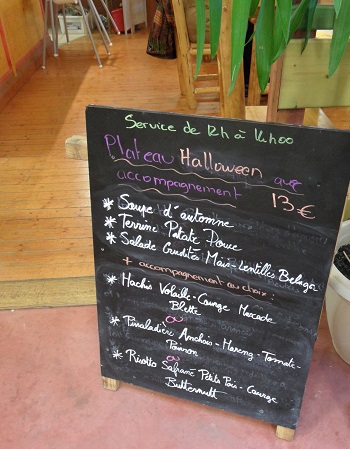 Service de 12h à 14h00
Plateau Halloween avec
accompagnement 13€
* Soupe d'automne
* Terrine Patate Douce
* Salade Crudités Maïs-Lentilles Beluga
+ accompagnement au choix:
* Hachis Volaille-Courge Muscade
Blette
ou
* Pissaladière Anchois-Hareng-Tomate-
Poivron
ou
* Risotto Safrané Petits Pois-Courge
Butternutt